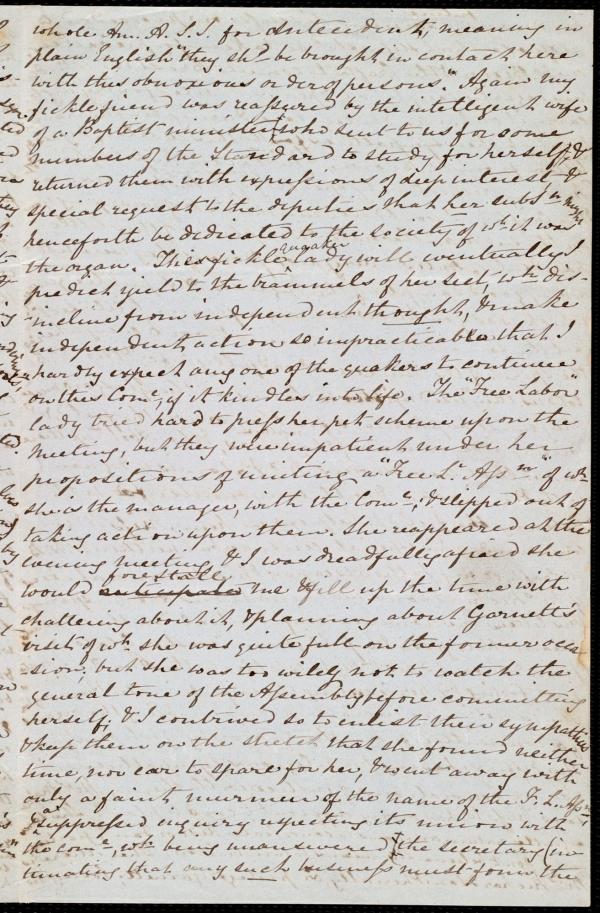 whole Am. A. S. S. for Antecedent, meaning in
plain English "they shd. be brought in contact here
with this obnoxious order of persons." Again my
fickle friend was reassured by the intelligent wife
of a Baptist minister who sent to us for some
numbers of the Standard to study for herself, &
returned them with expressions of deep interest &
special request to the deputies that her subsn. might
henceforth be dedicated to the society of wh. it was
the organ. This fickle quaker lady will eventually I
predict yield to the trammels of her sect, wh. dis-
incline from independent thought, & make
independent action so impracticable that I
hardly expect any one of the quakers to continue
on this Come, if it kindles into life. The "Free Labor"
lady tried hard to press her pet scheme upon the
Meeting, but they were impatient under her
propositions of uniting a "Free L. Assn" of wh.
she is the manager, with the Come; & slipped out of
taking action upon them. She reappeared at the
evening meeting & I was dreadfully afraid she
would anticipate forestall me & fill up the time with
chattering about it, & planning about Garnett's
visit of wh. she was quite full on the former occa
-sion; but she was too wily not to watch the
general tone of the Assembly before committing
herself, & I contrived so to enlist their sympathies
& keep them on the stretch that she found neither
time, nor ear to spare for her, & went away with
only a faint murmur of the name of the F. L. Assn,
& suppressed inquiry respecting its union with
the come, wh. being unanswered, the secretary (in
timating that any such business must form the